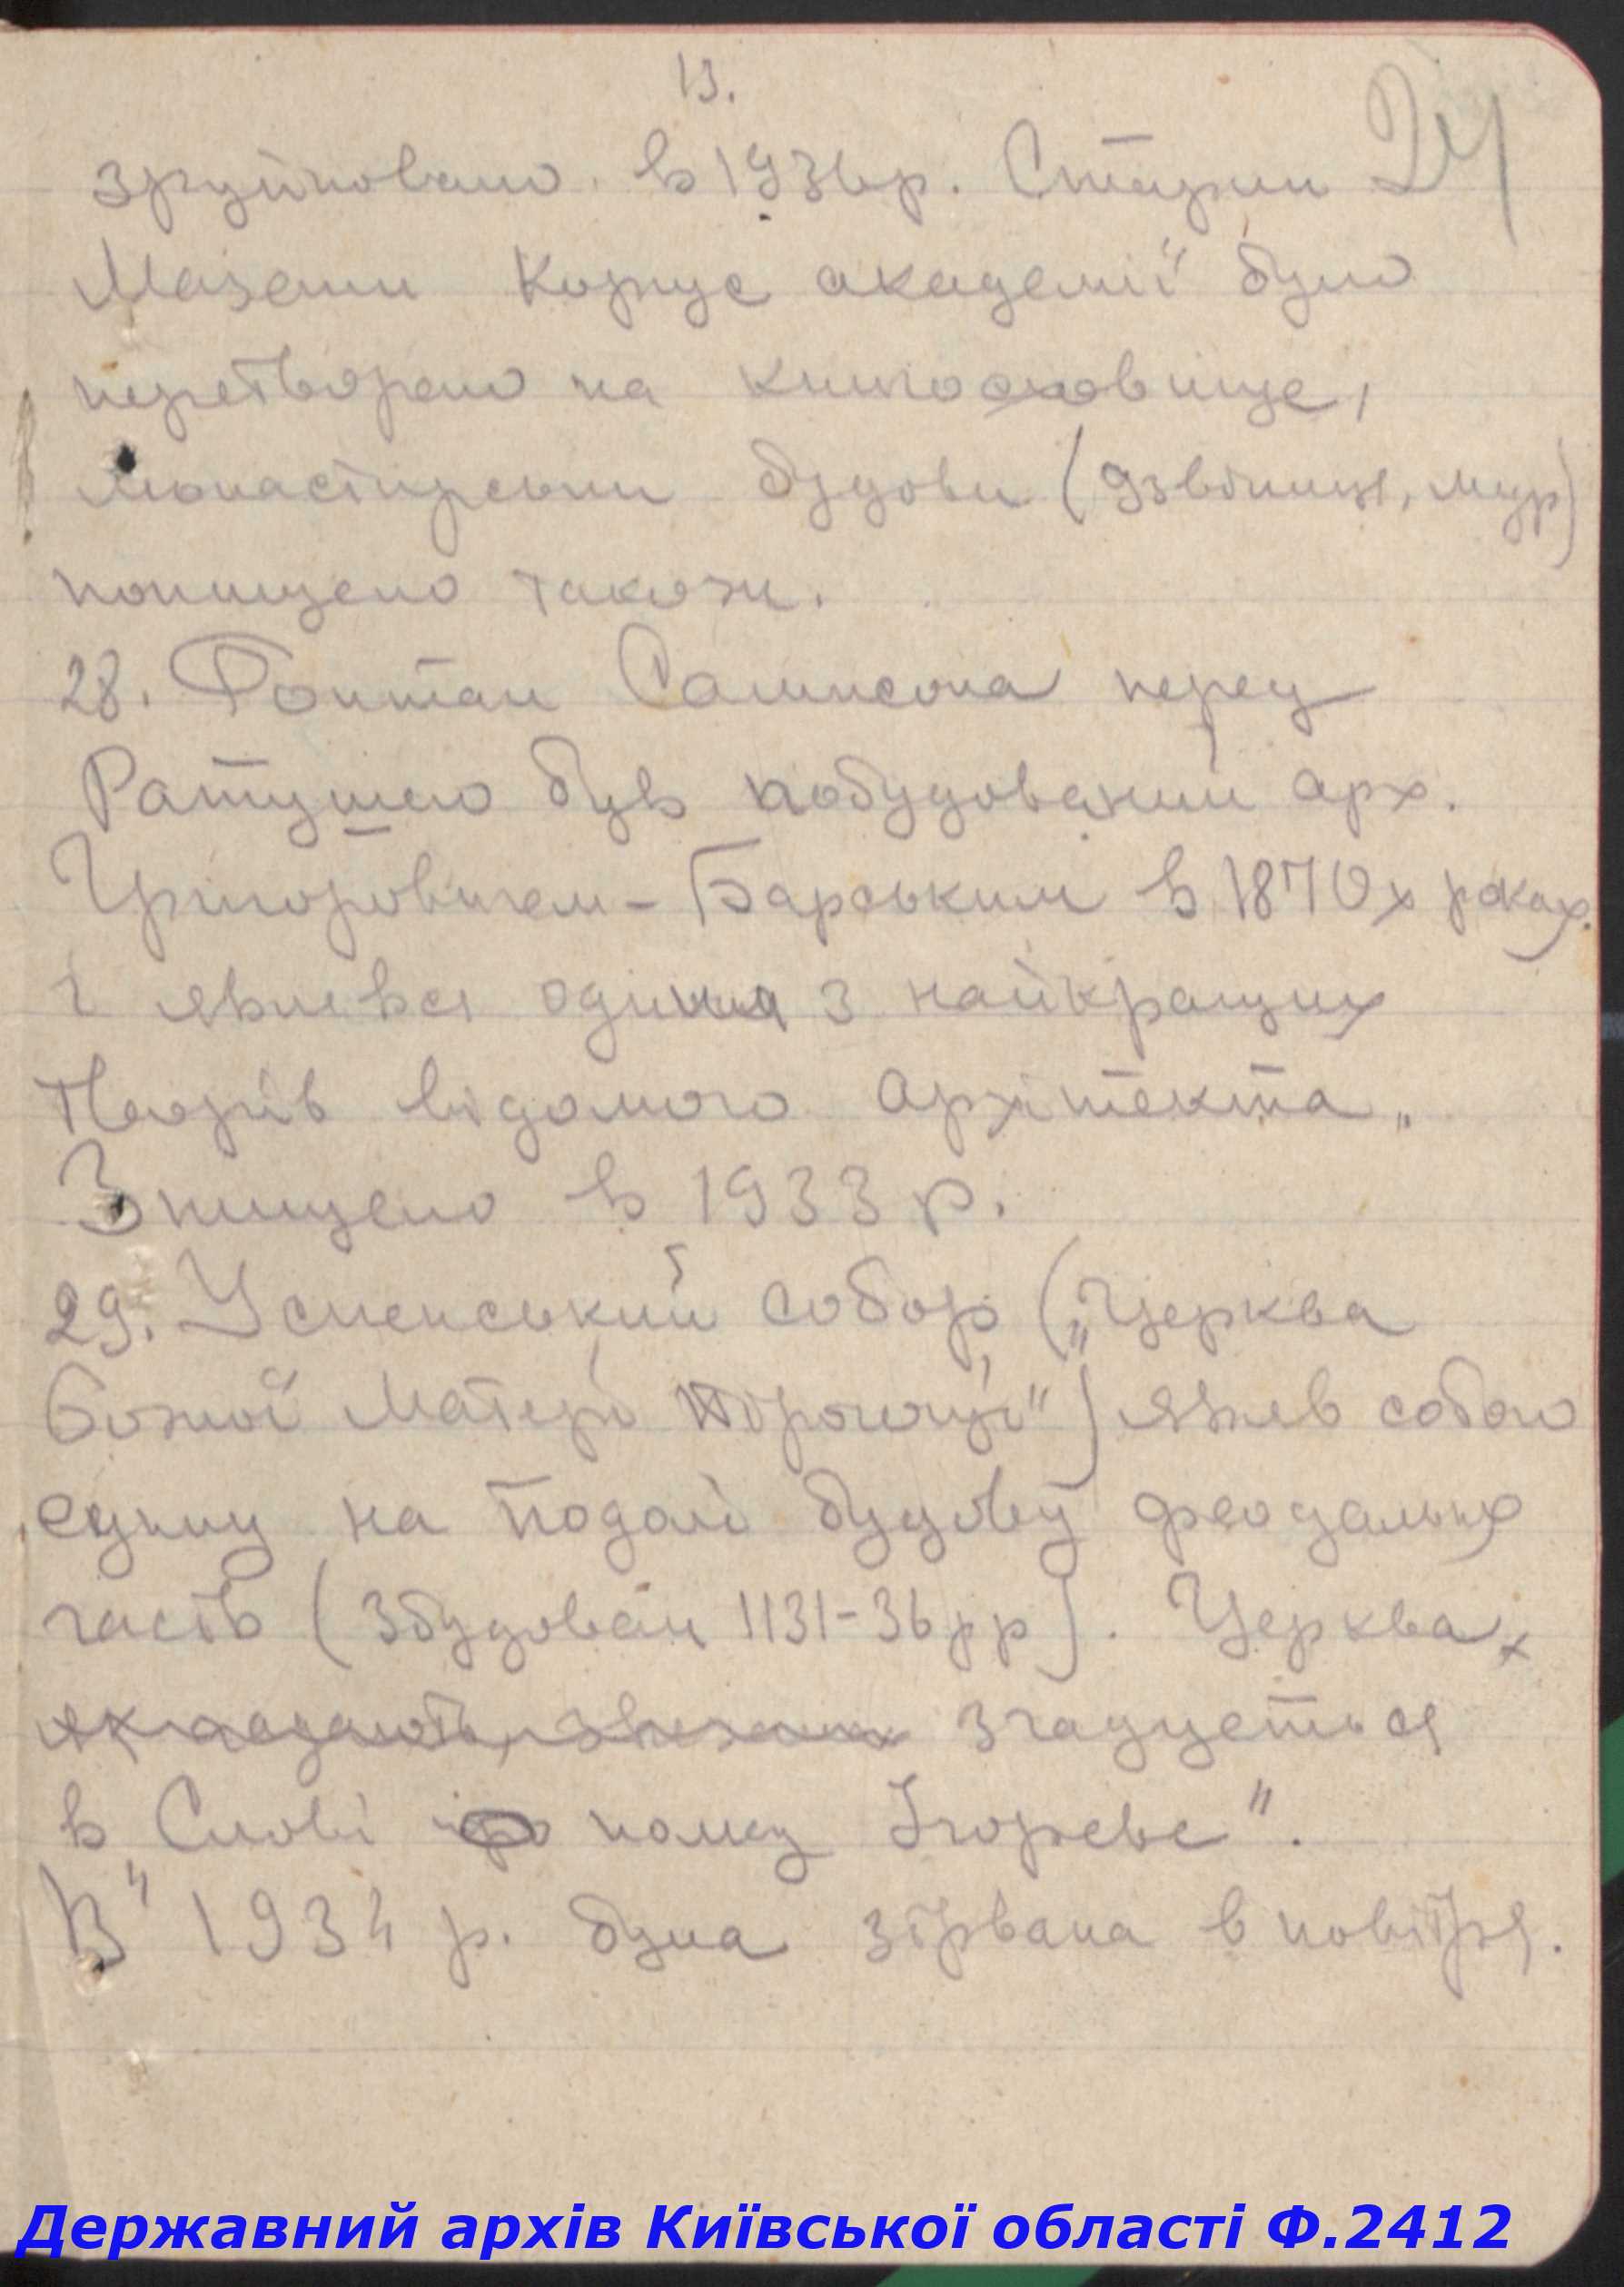 13.
24
зруйновано в 1936р. Старий
Мазепин корпус академії було
перетворено на книгосховище,
монастирськи будови (дзвіниця, мур)
понищено також.
28. Фонтан Сампсона перед
Ратушею був побудований арх.
Григоровичем-Барським в 1870х роках.
і являвся одним з найкращих
творів відомого архітекта.
Знищено в 1933 р.
29. Успенський собор („Церква
Божої Матері Пірогощі") являв собою
єдину на Подолі будову феодальних
часів (збудован 1131-36 рр). Церква
згадується
в Слові о полку Ігореве".
В 1934 р. була зірвана в повітря.
Державний архів Київської області Ф.2412